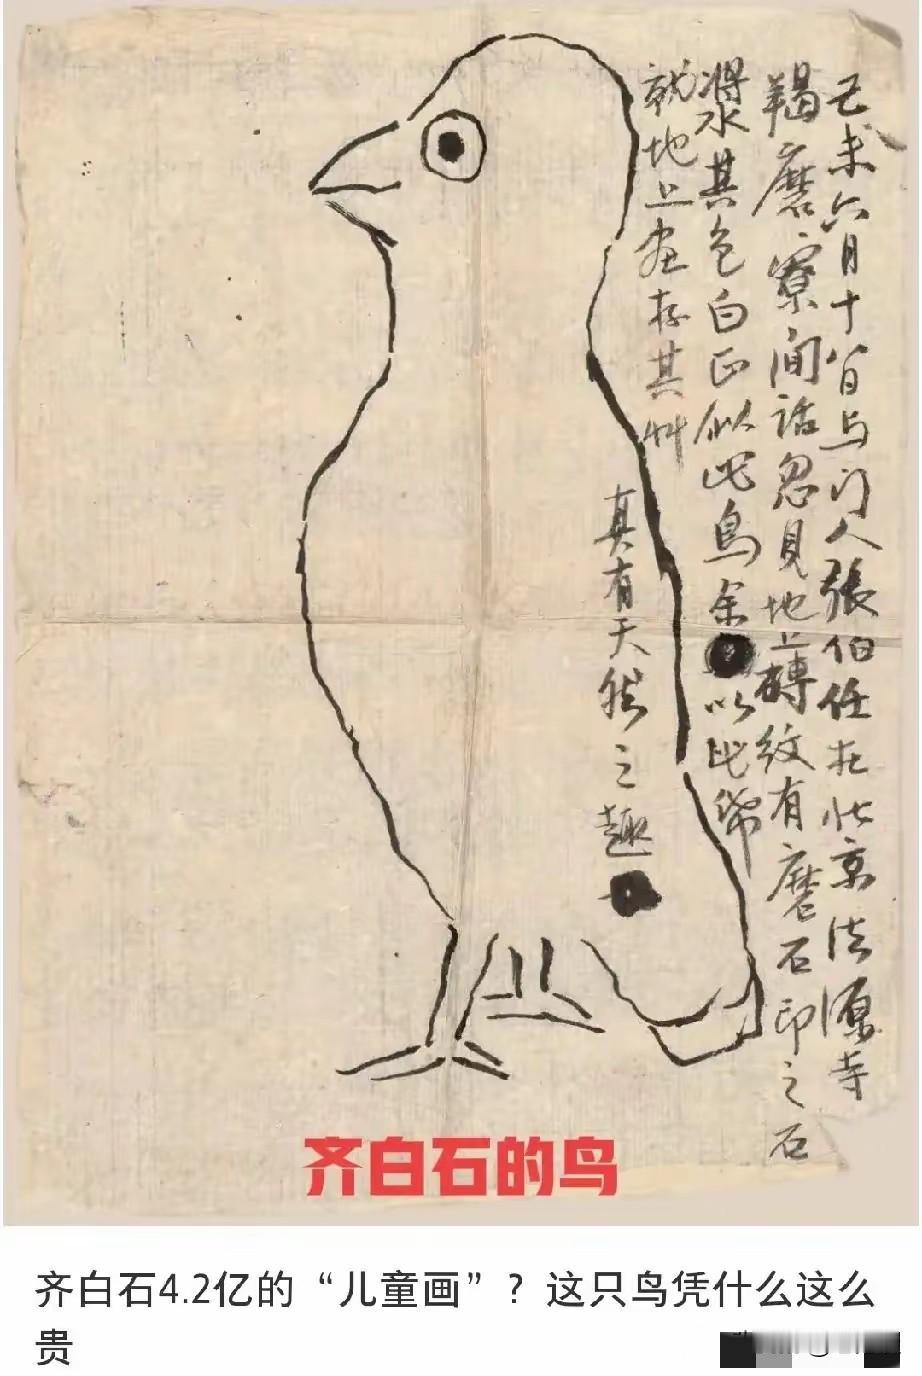 己未六月十八日与门人張伯任在北京法源寺
羯磨寮间话忽見地上磚纹有磨石印之石
漿水其色白正似此鳥余以此紙
就地上画存其艸
真有天然之趣
齐白石的鸟
齐白石4.2亿的“儿童画”？这只鸟凭什么这么
贵